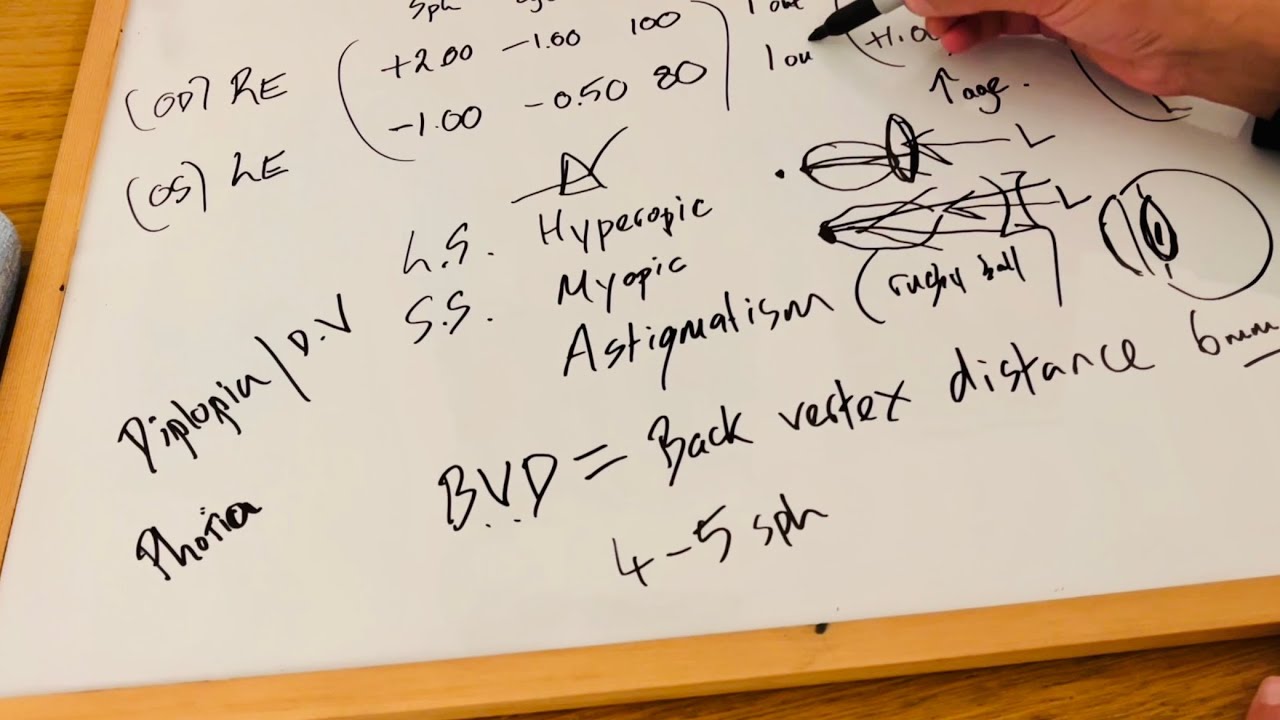 sph
(OD) RE +2.00 -1.00 100 1 out
(OS) LE -1.00 -0.50 80 1 ou
↑ age.
L
L
L.S. Hyperopic
S.S. Myopic
Astigmatism (rugby ball)
Diplopia / D.V
BVD = Back vertex distance 6mm
Photia
4-5 sph